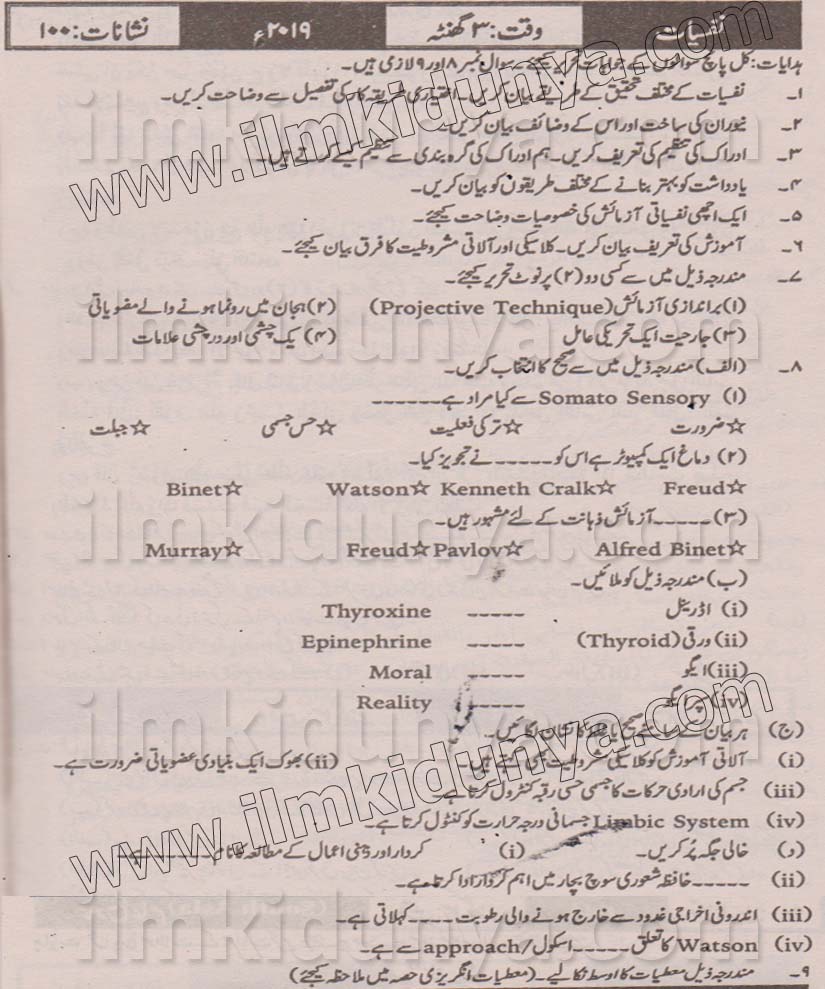 نفسیات وقت: ۳ گھنٹہ ۲۰۱۹ء نشانات: ۱۰۰
ہدایات: کل پانچ سوالوں کے جوابات تحریر کیجئے سوال نمبر ۸ اور ۹ لازمی ہیں۔
۱۔ نفسیات کے مختلف تحقیق کے طریقے بیان کریں۔ اختیاری طریقہ کار کی تفصیل سے وضاحت کریں۔
۲۔ نیوران کی ساخت اور اس کے وضائف بیان کریں۔
۳۔ اوراک کی تنظیم کی تعریف کریں۔ ہم اوراک کی گروہ بندی سے تنظیم کیسے کرتے ہیں۔
۴۔ یادداشت کو بہتر بنانے کے مختلف طریقوں کو بیان کریں۔
۵۔ ایک اچھی نفسیاتی آزمائش کی خصوصیات وضاحت کیجئے۔
۶۔ آموزش کی تعریف بیان کریں۔ کلاسیکی اور آلاتی مشروطیت کا فرق بیان کیجئے۔
۷۔ مندرجہ ذیل میں سے کسی دو (۲) پر نوٹ تحریر کیجئے۔
(۱) براندازی آزمائش (Projective Technique) (۲) ہیجان میں رونما ہونے والے عضویاتی
(۳) جارحیت ایک تحریکی عامل (۴) یک چشمی اور در چشمی علامات
۸۔ (الف) مندرجہ ذیل میں سے صحیح کا انتخاب کریں۔
(۱) Somato Sensory سے کیا مراد ہے ------
☆ضرورت ☆ترکی فعلیت ☆حس جسمی ☆جبلت
(۲) دماغ ایک کمپیوٹر ہے اس کو ----- نے تجویز کیا۔
☆Freud ☆Kenneth Cralk ☆Watson ☆Binet
(۳) ----- آزمائش ذہانت کے لئے مشہور ہیں۔
☆Alfred Binet ☆Pavlov ☆Freud ☆Murray
(ب) مندرجہ ذیل کو ملائیں۔
(i) اڈرینل ----- Thyroxine
(ii) ورقی (Thyroid) ----- Epinephrine
(iii) ایگو ----- Moral
(iv) سپر ایگو ----- Reality
(ج) ہر بیان کے سامنے صحیح یا غلط کا نشان لگائیں۔
(i) آلاتی آموزش کو کلاسیکی مشروطیت بھی کہتے ہیں۔ (ii) بھوک ایک بنیادی عضویاتی ضرورت ہے۔
(iii) جسم کی ارادی حرکات کا جسمی حسی رقبہ کنٹرول کرتا ہے۔
(iv) Limbic System جسمانی درجہ حرارت کو کنٹول کرتا ہے۔
(د) خالی جگہ پُر کریں۔ (i) کردار اور ذہنی اعمال کے مطالعہ کا نام ----- ہے۔
(ii) ----- حافظہ شعوری سوچ بچار میں اہم کردار ادا کرتا ہے۔
(iii) اندرونی اخراجی غدود سے خارج ہونے والی رطوبت ---- کہلاتی ہے۔
(iv) Watson کا تعلق ----- اسکول/approach سے ہے۔
۹۔ مندرجہ ذیل معطیات کا اوسط نکالیے۔ (معطیات انگریزی حصہ میں ملاحظہ کیجئے)
www.ilmkidunya.com
www.ilmkidunya.com
ilmkidunya.com
ilmkidunya.com
ilmkidunya.com
ilmkidunya.com
ilmkidunya.com